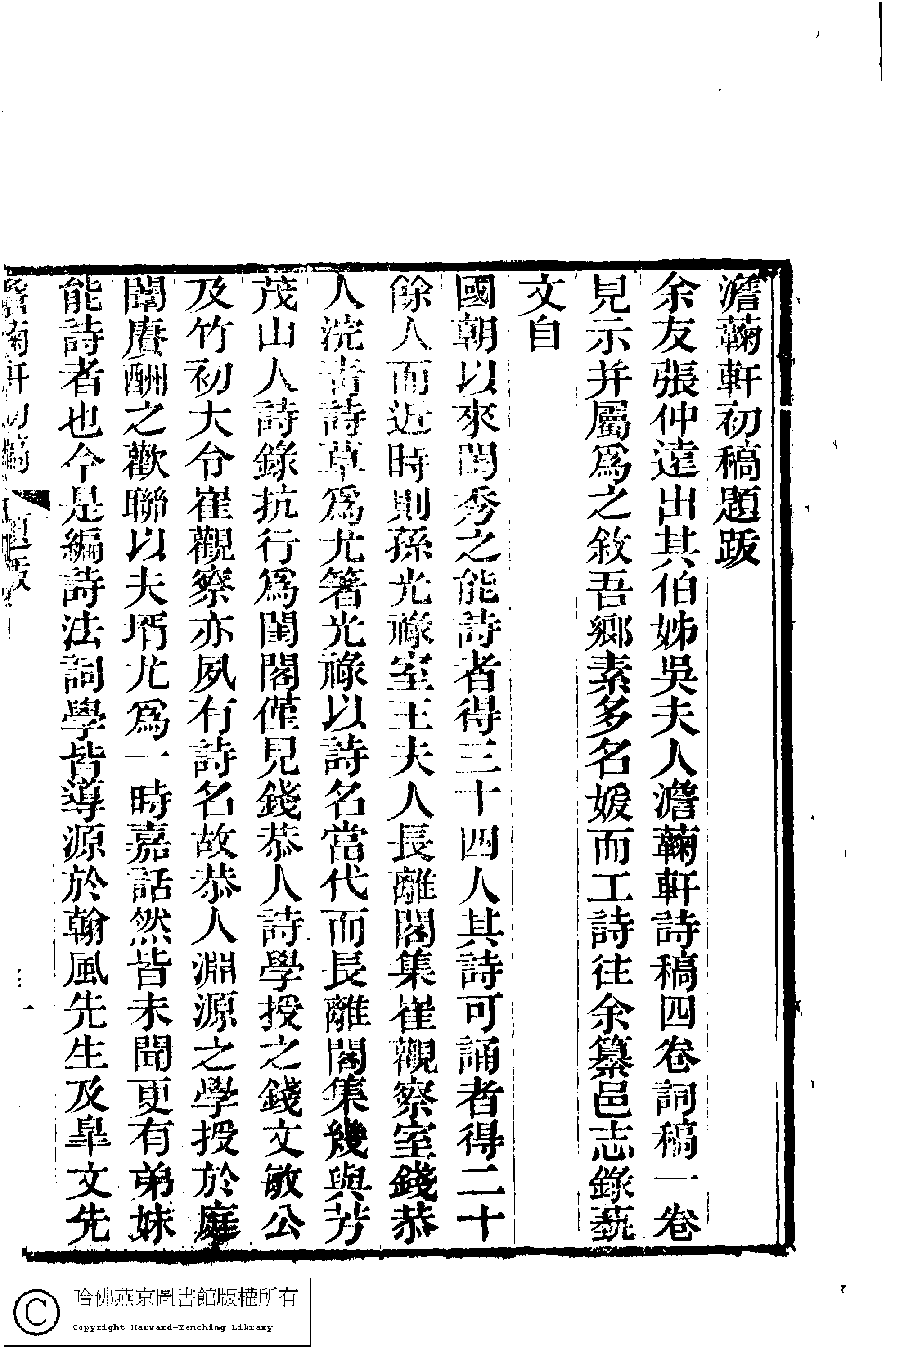 澹蘜軒初稿題跋
余友張仲遠出其伯姊吳夫人澹蘜軒詩稿四卷詞稿一卷
見示并屬爲之敘吾鄉素多名媛而工詩往余纂邑志錄藝
文自
國朝以來閨秀之能詩者得三十四人其詩可誦者得二十
餘人而近時則孫光祿室王夫人長離閣集崔觀察室錢恭
人浣青詩草爲尤著光祿以詩名當代而長離閣集幾與芳
茂山人詩錄抗行爲閨閣僅見錢恭人詩學授之錢文敏公
及竹初大令崔觀察亦夙有詩名故恭人淵源之學授於庭
闈賡酬之歡聯以夫壻尤爲一時嘉話然皆未聞更有弟妹
能詩者也今是編詩法詞學皆導源於翰風先生及臯文先
澹蘜軒初稿 題跋 一
哈佛燕京圖書館版權所有
Copyright Harvard-Yenching Library